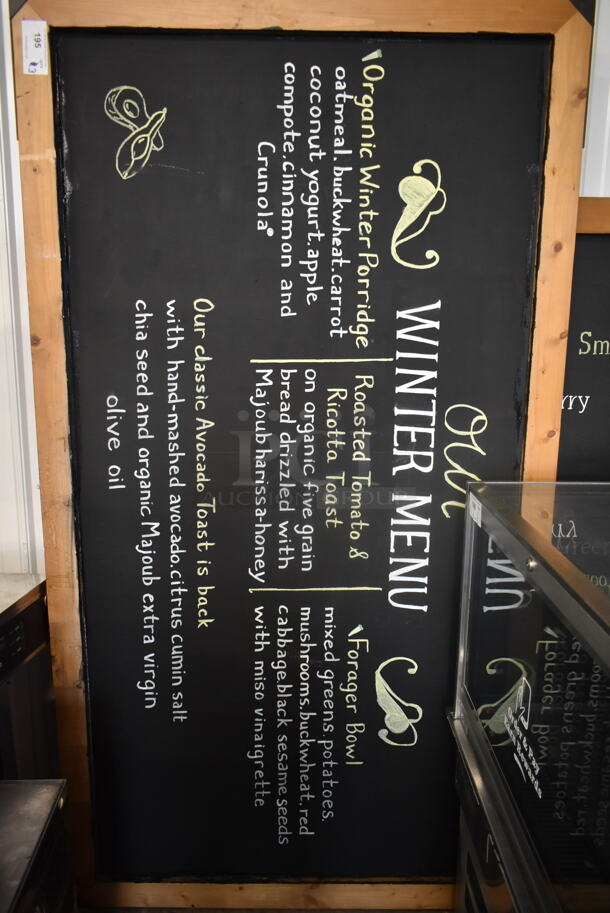 our
WINTER MENU
Organic Winter Porridge
oatmeal, buckwheat, carrot
coconut yogurt, apple
compote, cinnamon and
Crunola®
Roasted Tomato &
Ricotta Toast
on organic five grain
bread drizzled with
Majoub harissa-honey
Forager Bowl
mixed greens, potatoes,
mushrooms, buckwheat, red
cabbage, black sesame seeds
with miso vinaigrette
Our classic Avocado Toast is back
with hand-mashed avocado, citrus cumin salt
chia seed and organic Majoub extra virgin
olive oil
195
Sm
rry